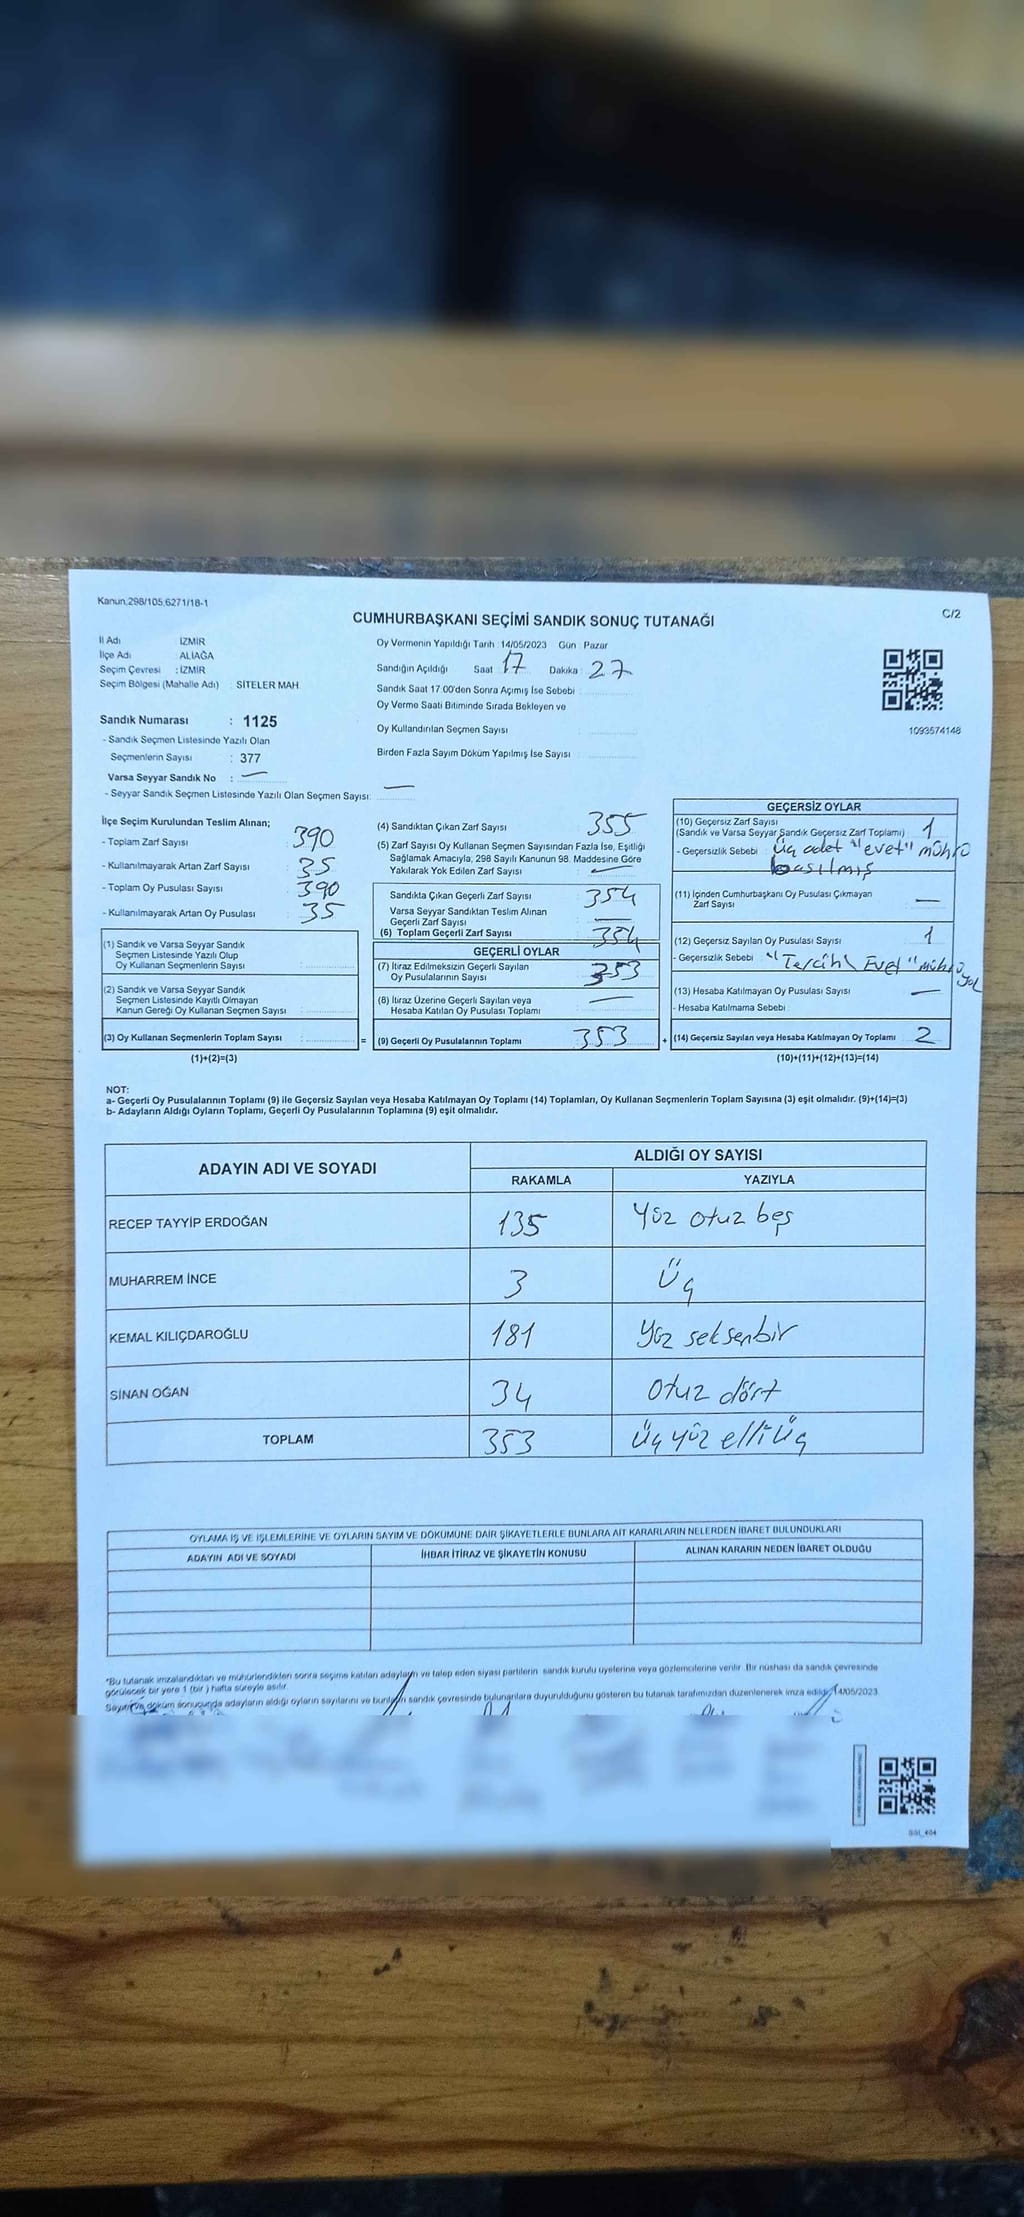 Kanun.298/105,6271/18-1
C/2
CUMHURBAŞKANI SEÇİMİ SANDIK SONUÇ TUTANAĞI
İl Adı : İZMİR
İlçe Adı : ALİAĞA
Seçim Çevresi : İZMİR
Seçim Bölgesi (Mahalle Adı) : SİTELER MAH.
Sandık Numarası : 1125
- Sandık Seçmen Listesinde Yazılı Olan
Seçmenlerin Sayısı : 377
Varsa Seyyar Sandık No : —
- Seyyar Sandık Seçmen Listesinde Yazılı Olan Seçmen Sayısı: —
Oy Vermenin Yapıldığı Tarih : 14/05/2023 Gün : Pazar
Sandığın Açıldığı Saat : 17 Dakika : 27
Sandık Saat 17.00'den Sonra Açımış İse Sebebi :
Oy Verme Saati Bitiminde Sırada Bekleyen ve
Oy Kullandırılan Seçmen Sayısı :
Birden Fazla Sayım Döküm Yapılmış İse Sayısı :
1093574148
İlçe Seçim Kurulundan Teslim Alınan;
- Toplam Zarf Sayısı : 390
- Kullanılmayarak Artan Zarf Sayısı : 35
- Toplam Oy Pusulası Sayısı : 390
- Kullanılmayarak Artan Oy Pusulası : 35
(1) Sandık ve Varsa Seyyar Sandık
Seçmen Listesinde Yazılı Olup
Oy Kullanan Seçmenlerin Sayısı :
(2) Sandık ve Varsa Seyyar Sandık
Seçmen Listesinde Kayıtlı Olmayan
Kanun Gereği Oy Kullanan Seçmen Sayısı :
(3) Oy Kullanan Seçmenlerin Toplam Sayısı : =
(1)+(2)=(3)
(4) Sandıktan Çıkan Zarf Sayısı : 355
(5) Zarf Sayısı Oy Kullanan Seçmen Sayısından Fazla İse, Eşitliği
Sağlamak Amacıyla; 298 Sayılı Kanunun 98. Maddesine Göre
Yakılarak Yok Edilen Zarf Sayısı : —
Sandıkta Çıkan Geçerli Zarf Sayısı : 354
Varsa Seyyar Sandıktan Teslim Alınan
Geçerli Zarf Sayısı : —
(6) Toplam Geçerli Zarf Sayısı : 354
GEÇERLİ OYLAR
(7) İtiraz Edilmeksizin Geçerli Sayılan
Oy Pusulalarının Sayısı : 353
(8) İtiraz Üzerine Geçerli Sayılan veya
Hesaba Katılan Oy Pusulası Toplamı : —
(9) Geçerli Oy Pusulalarının Toplamı : 353 +
GEÇERSİZ OYLAR
(10) Geçersiz Zarf Sayısı
(Sandık ve Varsa Seyyar Sandık Geçersiz Zarf Toplamı) : 1
- Geçersizlik Sebebi : Üç adet "evet" mührü
basılmış
(11) İçinden Cumhurbaşkanı Oy Pusulası Çıkmayan
Zarf Sayısı : —
(12) Geçersiz Sayılan Oy Pusulası Sayısı : 1
- Geçersizlik Sebebi : "Tercih\ Evet" mührü yok
(13) Hesaba Katılmayan Oy Pusulası Sayısı : —
- Hesaba Katılmama Sebebi :
(14) Geçersiz Sayılan veya Hesaba Katılmayan Oy Toplamı : 2
(10)+(11)+(12)+(13)=(14)
NOT:
a- Geçerli Oy Pusulalarının Toplamı (9) ile Geçersiz Sayılan veya Hesaba Katılmayan Oy Toplamı (14) Toplamları, Oy Kullanan Seçmenlerin Toplam Sayısına (3) eşit olmalıdır. (9)+(14)=(3)
b- Adayların Aldığı Oyların Toplamı, Geçerli Oy Pusulalarının Toplamına (9) eşit olmalıdır.
ADAYIN ADI VE SOYADI ALDIĞI OY SAYISI
RAKAMLA YAZIYLA
RECEP TAYYİP ERDOĞAN 135 Yüz otuz beş
MUHARREM İNCE 3 Üç
KEMAL KILIÇDAROĞLU 181 Yüz seksenbir
SİNAN OĞAN 34 Otuz dört
TOPLAM 353 Üç yüz elli üç
OYLAMA İŞ VE İŞLEMLERİNE VE OYLARIN SAYIM VE DÖKÜMÜNE DAİR ŞİKAYETLERLE BUNLARA AİT KARARLARIN NELERDEN İBARET BULUNDUKLARI
ADAYIN ADI VE SOYADI İHBAR İTİRAZ VE ŞİKAYETİN KONUSU ALINAN KARARIN NEDEN İBARET OLDUĞU
*Bu tutanak imzalandıktan ve mühürlendikten sonra seçime katılan adayların ve talep eden siyasi partilerin sandık kurulu üyelerine veya gözlemcilerine verilir. Bir nüshası da sandık çevresinde
görülecek bir yere 1 (bir ) hafta süreyle asılır.
Sayım ve döküm sonucunda adayların aldığı oyların sayılarını ve bunların sandık çevresinde bulunanlara duyurulduğunu gösteren bu tutanak tarafımızdan düzenlenerek imza edildi. 14/05/2023